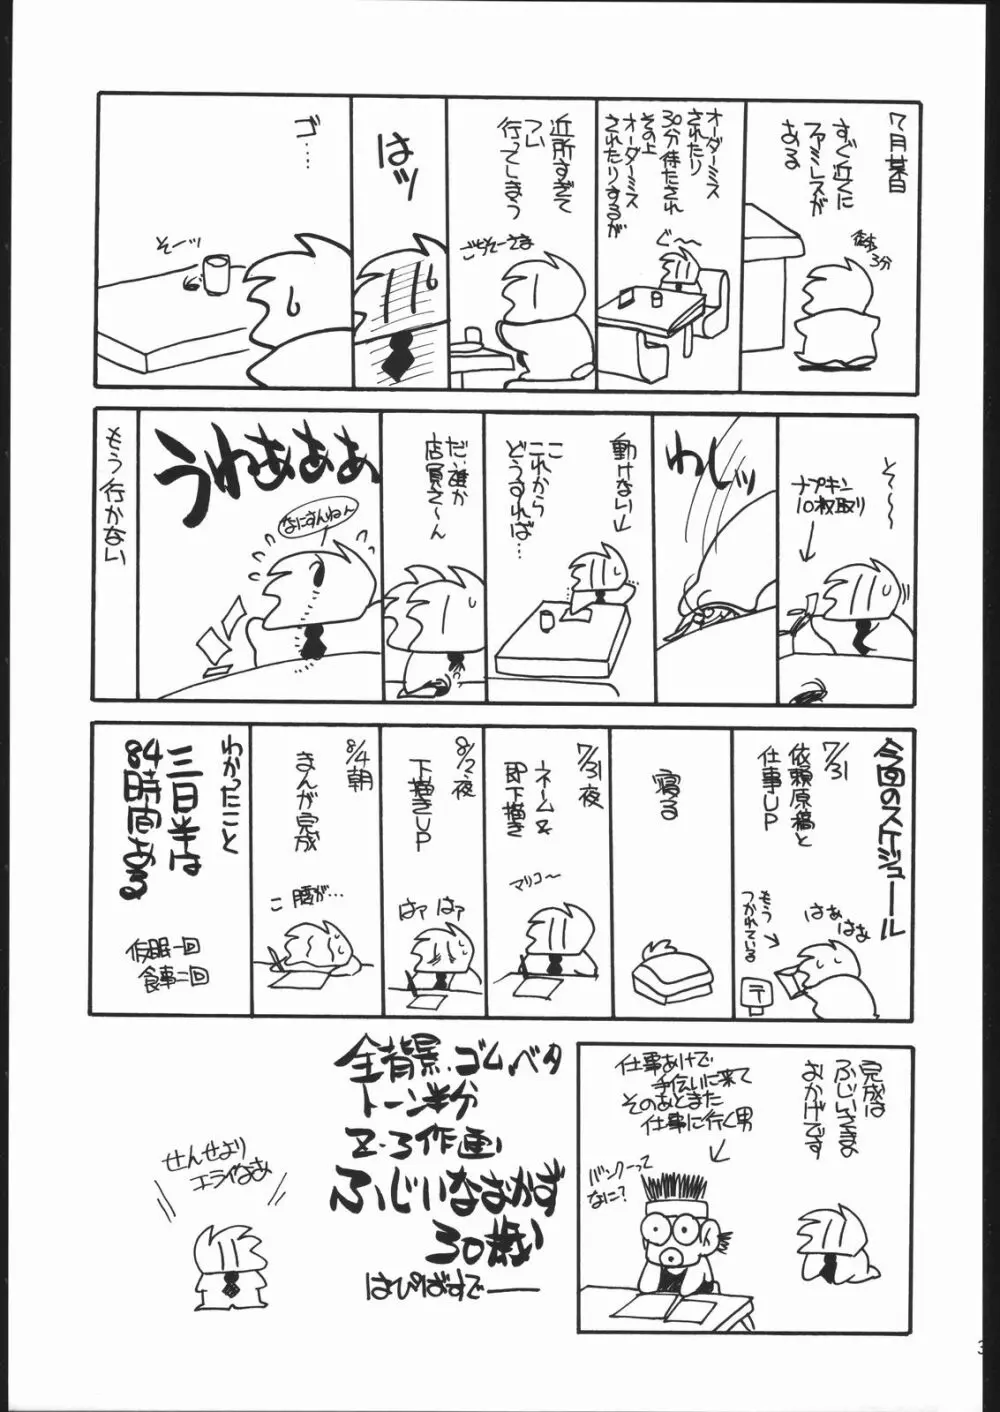 7月某日
すぐ近くに
ファミレスが
ある
徒歩
3分
オーダーミス
されたり
30分待たされ
その上
オーダーミス
されたりするが
ぐ〜〜
近所すぎて
つい
行ってしまう
ごちそーさま
はッ
ゴ……
そーッ
そ〜〜〜
ナプキン
10枚取り
わしッ
動けない
これから
どうすれば…
だ、誰か
店員さ〜ん
うわあああ
なにすんねん
もう行かない
今回のスケジュール
7/31
依頼原稿と
仕事UP
はぁはぁ
もう
つかれている
〒
寝る
7/31夜
ネーム&
即下描き
マリコ〜
8/2夜
下描きUP
はァ はァ
8/4朝
まんが完成
こ 腰が…
わかったこと
三日半は
84時間ある
仮眠一回
食事二回
完成は
ふじいさま
おかげです
仕事あけで
手伝いに来て
そのあとまた
仕事に行く男
バンクーって
なに?
全背景、ゴム、ベタ
トーン半分
2・3作画
ふじいなおかず
30歳
はぴばすでー
せんせより
エライなあ
3